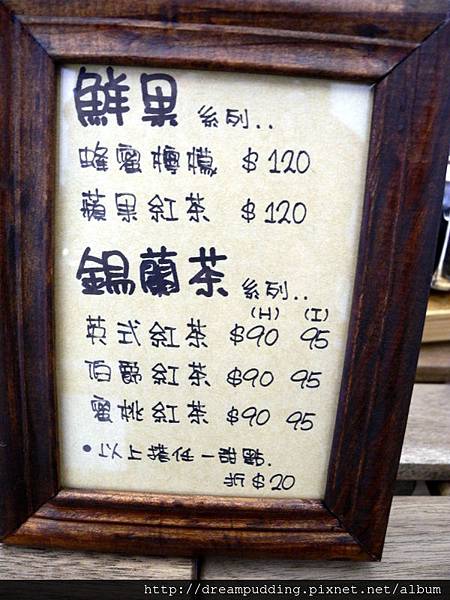 鮮果 系列..
蜂蜜檸檬 $120
蘋果紅茶 $120
錫蘭茶 系列..
(H) (I)
英式紅茶 $90 95
伯爵紅茶 $90 95
蜜桃紅茶 $90 95
•以上搭任一甜點.
折$20
http://dreampudding.pixnet.net/album